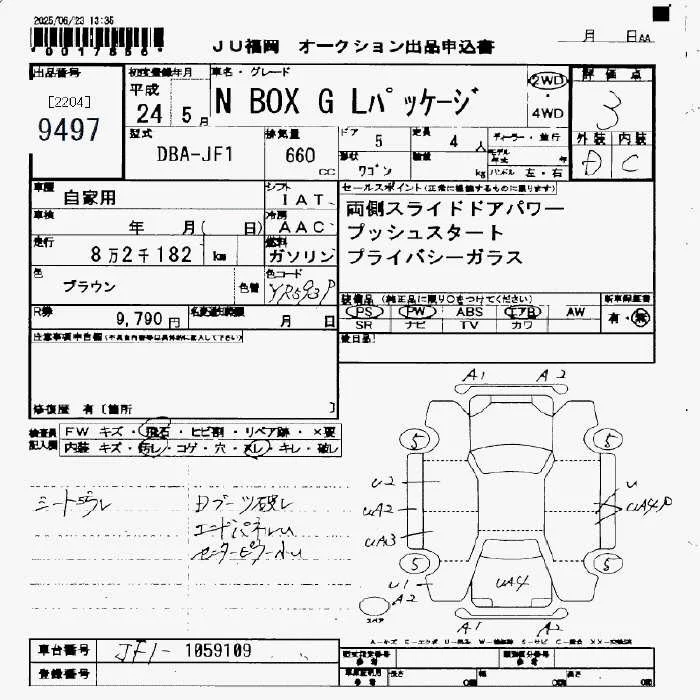 2025/06/23 13:35
*0017856*
JU福岡 オークション出品申込書
月 日AA
出品番号
[2204]
9497
初度登録年月
平成
24 5月
車名・グレード
N BOX G Lパッケージ
2WD
・
4WD
評価点
3
外装 内装
D C
型式
DBA-JF1
排気量
660 CC
ドア 5
定員 4人
形状
ワゴン
kg
ディーラー・並行
ハンドル 左・右
車歴
自家用
シフト
IAT
セールスポイント(正常に機能するものに限ります)
両側スライドドアパワー
プッシュスタート
プライバシーガラス
車検
年 月( 日)
冷房
AAC
走行
8万2千182 km
燃料
ガソリン
色
ブラウン
色替
色コード
YR593P
装備品 (純正品に限り〇をつけてください)
PS PW ABS エアB AW
SR ナビ TV カワ
新車保証書
有・無
R券
9,790円
名変通知期限
月 日
後日品
注意事項申告欄(不具合内容等は具体的に記入して下さい)
修復歴 有〔箇所 〕
検査員
記入欄
FW キズ・飛石・ヒビ割・リペア跡・×要
内装 キズ・汚レ・コゲ・穴・スレ・キレ・破レ
Dブーツ破レ
A1 A2
5 5
U2
UA2
UA3
U
UA4P
5 5
U1
A2
UA4
A1 A2
スペア
車台番号
JF1- 1059109
登録番号
長さ 幅 高さ